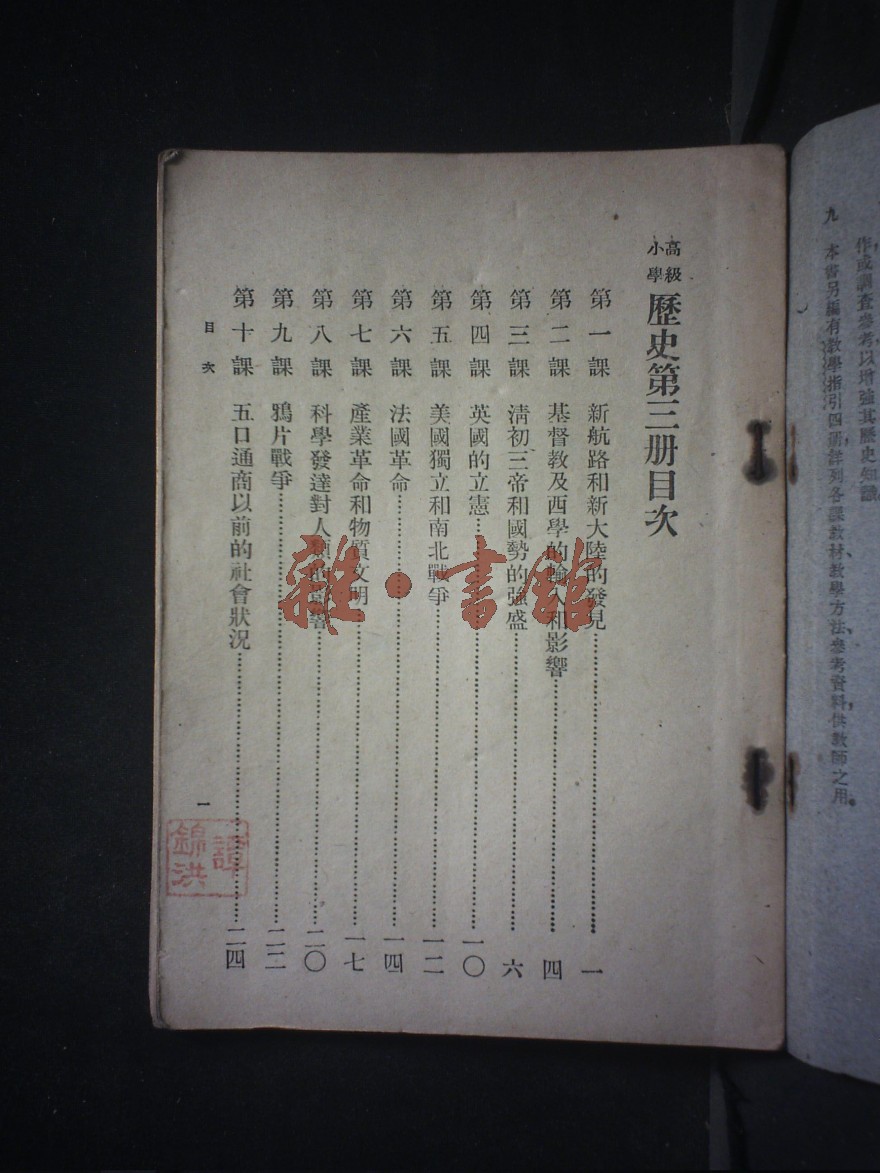 九　本書另編有教學指引四冊詳列各課教材、教學方法、參考資料、供教師之用。
高級小學 歷史第三册目次
第一課　新航路和新大陸的發見……一
第二課　基督教及西學的輸入和影響……四
第三課　清初三帝和國勢的強盛……六
第四課　英國的立憲……一〇
第五課　美國獨立和南北戰爭……一二
第六課　法國革命……一四
第七課　產業革命和物質文明……一七
第八課　科學發達對人類的影響……二〇
第九課　鴉片戰爭……二二
第十課　五口通商以前的社會狀況……二四
目次
一
譚錦洪
雜·書館